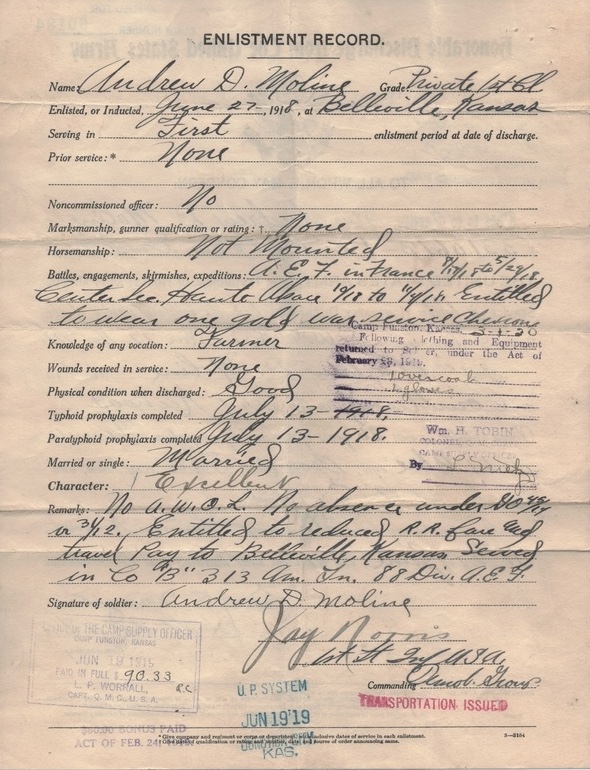 ENLISTMENT RECORD.
Name: Andrew D. Moline Grade: Private 1st Cl
Enlisted, or Inducted, June 27-, 1918, at Belleville, Kansas
Serving in First enlistment period at date of discharge.
Prior service: * None
Noncommissioned officer: No
Marksmanship, gunner qualification or rating: † None
Horsemanship: Not Mounted
Battles, engagements, skirmishes, expeditions: A. E. F. in France
Center Sec. Haute Alsace to Entitled
to wear one gold war service Chevron
Knowledge of any vocation: Farmer
Wounds received in service: None
Physical condition when discharged: Good
Typhoid prophylaxis completed July 13-1918.
Paratyphoid prophylaxis completed July 13-1918.
Married or single: Married
Character: Excellent
Remarks: No A.W.O.L. No absence under GO 45/14
or 31/12. Entitled to reduced R.R. fare and
travel Pay to Belleville, Kansas Served
in Co "B" 313 Am. Tn. 88 Div. A.E.F.
Signature of soldier: Andrew D. Moline
Jay Norris
1st Lt Inf U.S.A.
Commanding Demob. Group
Camp Funston, Kansas, 3-4-20
Following clothing and Equipment
returned to soldier, under the Act of
February 28, 1919.
1 overcoat
Wm. H. TOBIN
COLONEL
CAMP SUPPLY OFFICER
By
THE CAMP SUPPLY OFFICER
CAMP FUNSTON, KANSAS
JUN 19 1919
PAID IN FULL $ 90.33
L. P. WORRALL,
CAPT. Q. M. C., U. S. A.
$60.00 BONUS PAID
ACT OF FEB. 24,
U.P. SYSTEM
JUN 19'19
KAS.
TRANSPORTATION ISSUED
*Give company and regiment or corps or department, with inclusive dates of service in each enlistment.
†Give date of qualification or rating and number, date, and source of order announcing same.
3—3164